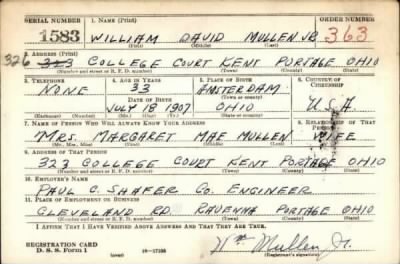 SERIAL NUMBER 1. NAME (Print) ORDER NUMBER
1583 WILLIAM DAVID MULLEN JR. 363
(First) (Middle) (Last)
2. ADDRESS (Print)
326 323 COLLEGE COURT KENT PORTAGE OHIO
(Number and street or R. F. D. number) (Town) (County) (State)
3. TELEPHONE 4. AGE IN YEARS 5. PLACE OF BIRTH 6. COUNTRY OF CITIZENSHIP
NONE 33 AMSTERDAM
DATE OF BIRTH (Town or county)
JULY 18 1907 OHIO U.S.A
(Exchange) (Number) (Mo.) (Day) (Yr.) (State or country)
7. NAME OF PERSON WHO WILL ALWAYS KNOW YOUR ADDRESS 8. RELATIONSHIP OF THAT PERSON
MRS. MARGARET MAE MULLEN WIFE
(Mr., Mrs., Miss) (First) (Middle) (Last)
9. ADDRESS OF THAT PERSON
323 COLLEGE COURT KENT PORTAGE OHIO
(Number and street or R. F. D. number) (Town) (County) (State)
10. EMPLOYER'S NAME
PAUL C. SHAFER CO. ENGINEER
11. PLACE OF EMPLOYMENT OR BUSINESS
CLEVELAND RD. RAVENNA PORTAGE OHIO
(Number and street or R. F. D. number) (Town) (County) (State)
I AFFIRM THAT I HAVE VERIFIED ABOVE ANSWERS AND THAT THEY ARE TRUE.
REGISTRATION CARD
D. S. S. Form 1 (over) Wm Mullen Jr.
(Registrant's signature)